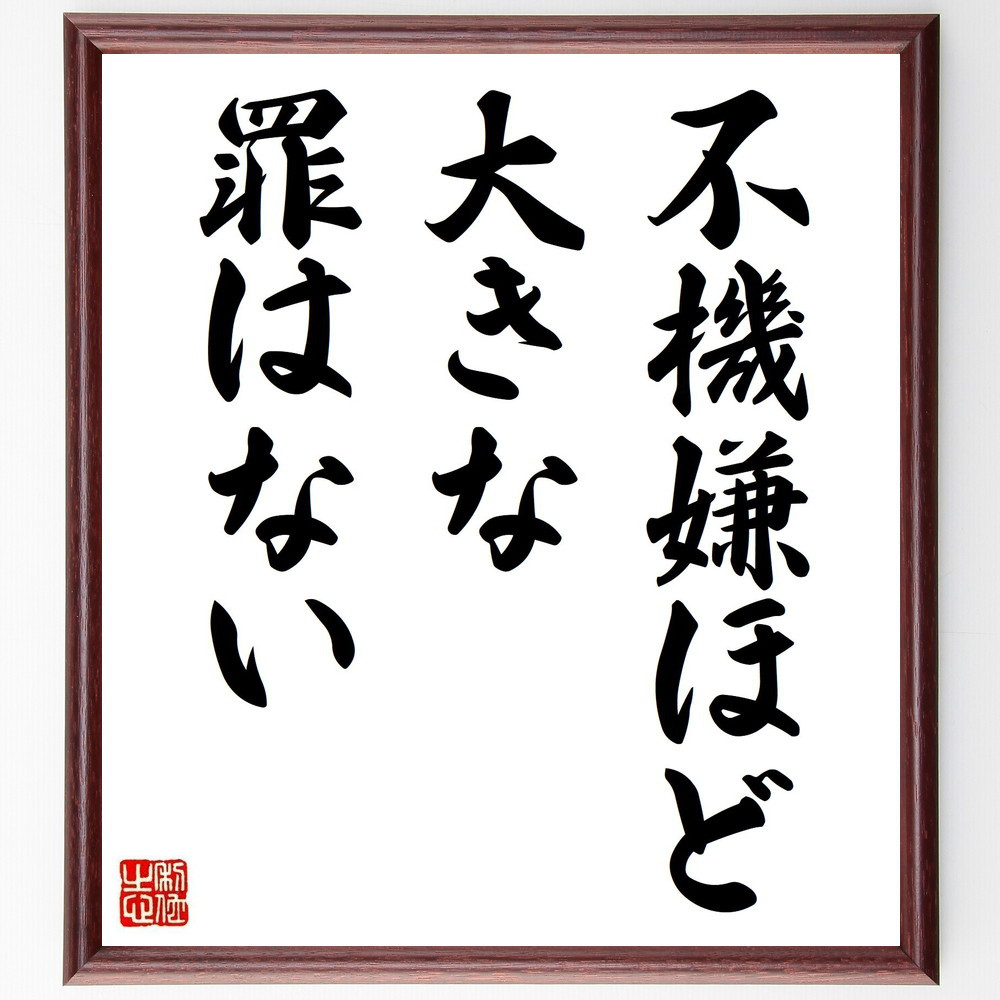 不機嫌ほど
大きな
罪はない